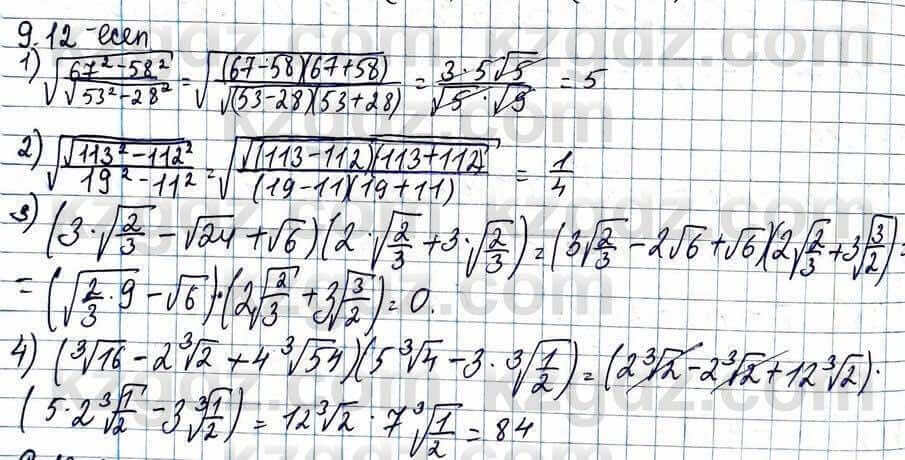 9.12-есеп
1) √(67² - 58²) / √(√(53² - 28²)) = √((67-58)(67+58)) / √(√((53-28)(53+28))) = 3·5√5 / √5·√9 = 5
2) √(√(113² - 112²) / (19² - 11²)) = √(√((113-112)(113+112)) / ((19-11)(19+11))) = 1/4
3) (3·√(2/3) - √24 + √6)(2·√(2/3) + 3·√(2/3)) = (3√(2/3) - 2√6 + √6)(2√(2/3) + 3√(3/2)) =
= (√(2/3 · 9) - √6)·(2√(2/3) + 3√(3/2)) = 0.
4) (∛16 - 2∛2 + 4∛54)(5∛4 - 3·∛(1/2)) = (2∛2 - 2∛2 + 12∛2)·
(5·2∛(1/2) - 3∛(1/2)) = 12∛2 · 7∛(1/2) = 84
kzgdz.com